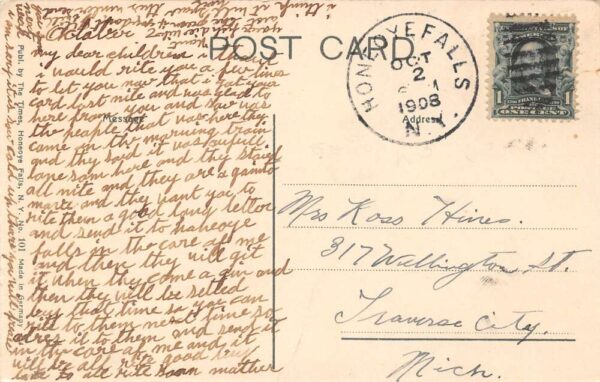 POST CARD.
Message
Address
Publ. by The Times, Honeoye Falls, N. Y. No. 101 Made in Germany
HONEOYE FALLS
OCT
2
1908
N.Y.
ONE CENT
October
my dear children i thot
i vould rite you a few lines
to let you now that i got your
card last nite and vas glad to
here from you and sav vas
the peaple that vas here they
came on the morning train
and they said it vas
lonesom here and they staid
all nite and they are a gainto
mave and they vant you to
rite them a good long letter
and send it to haneoye
falls in the care of me
and then they vill git
it vhen they come a gin and
then they vill be setled
by that time so you can
rite to them next time so
dres it to them and send it
in the care of me and it
vill be all rite good buy
love to all rite soon mather
Mrs Ross Hines.
317 Wellington St.
Traverse City.
Mich.